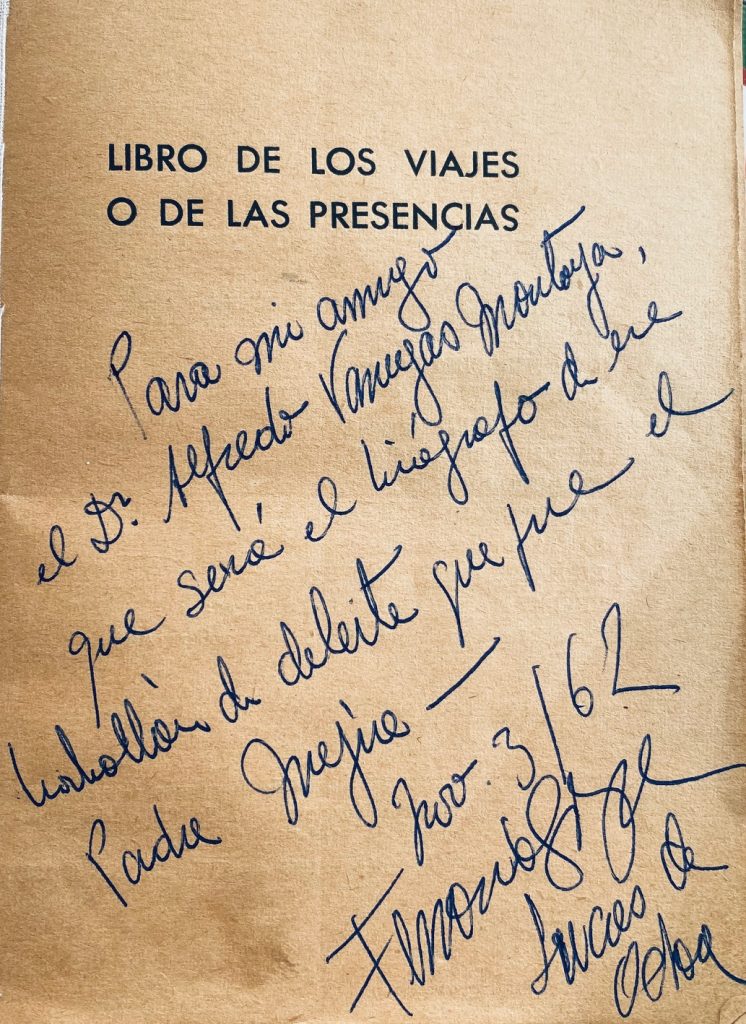 LIBRO DE LOS VIAJES
O DE LAS PRESENCIAS
Para mi amigo
el Dr. Alfredo Vanegas Montoya,
que será el biógrafo de ese
borbollón de deleite que fue el
Padre Mejía —
Nov. 3/62
Fernando González
Lucas de
Ochoa